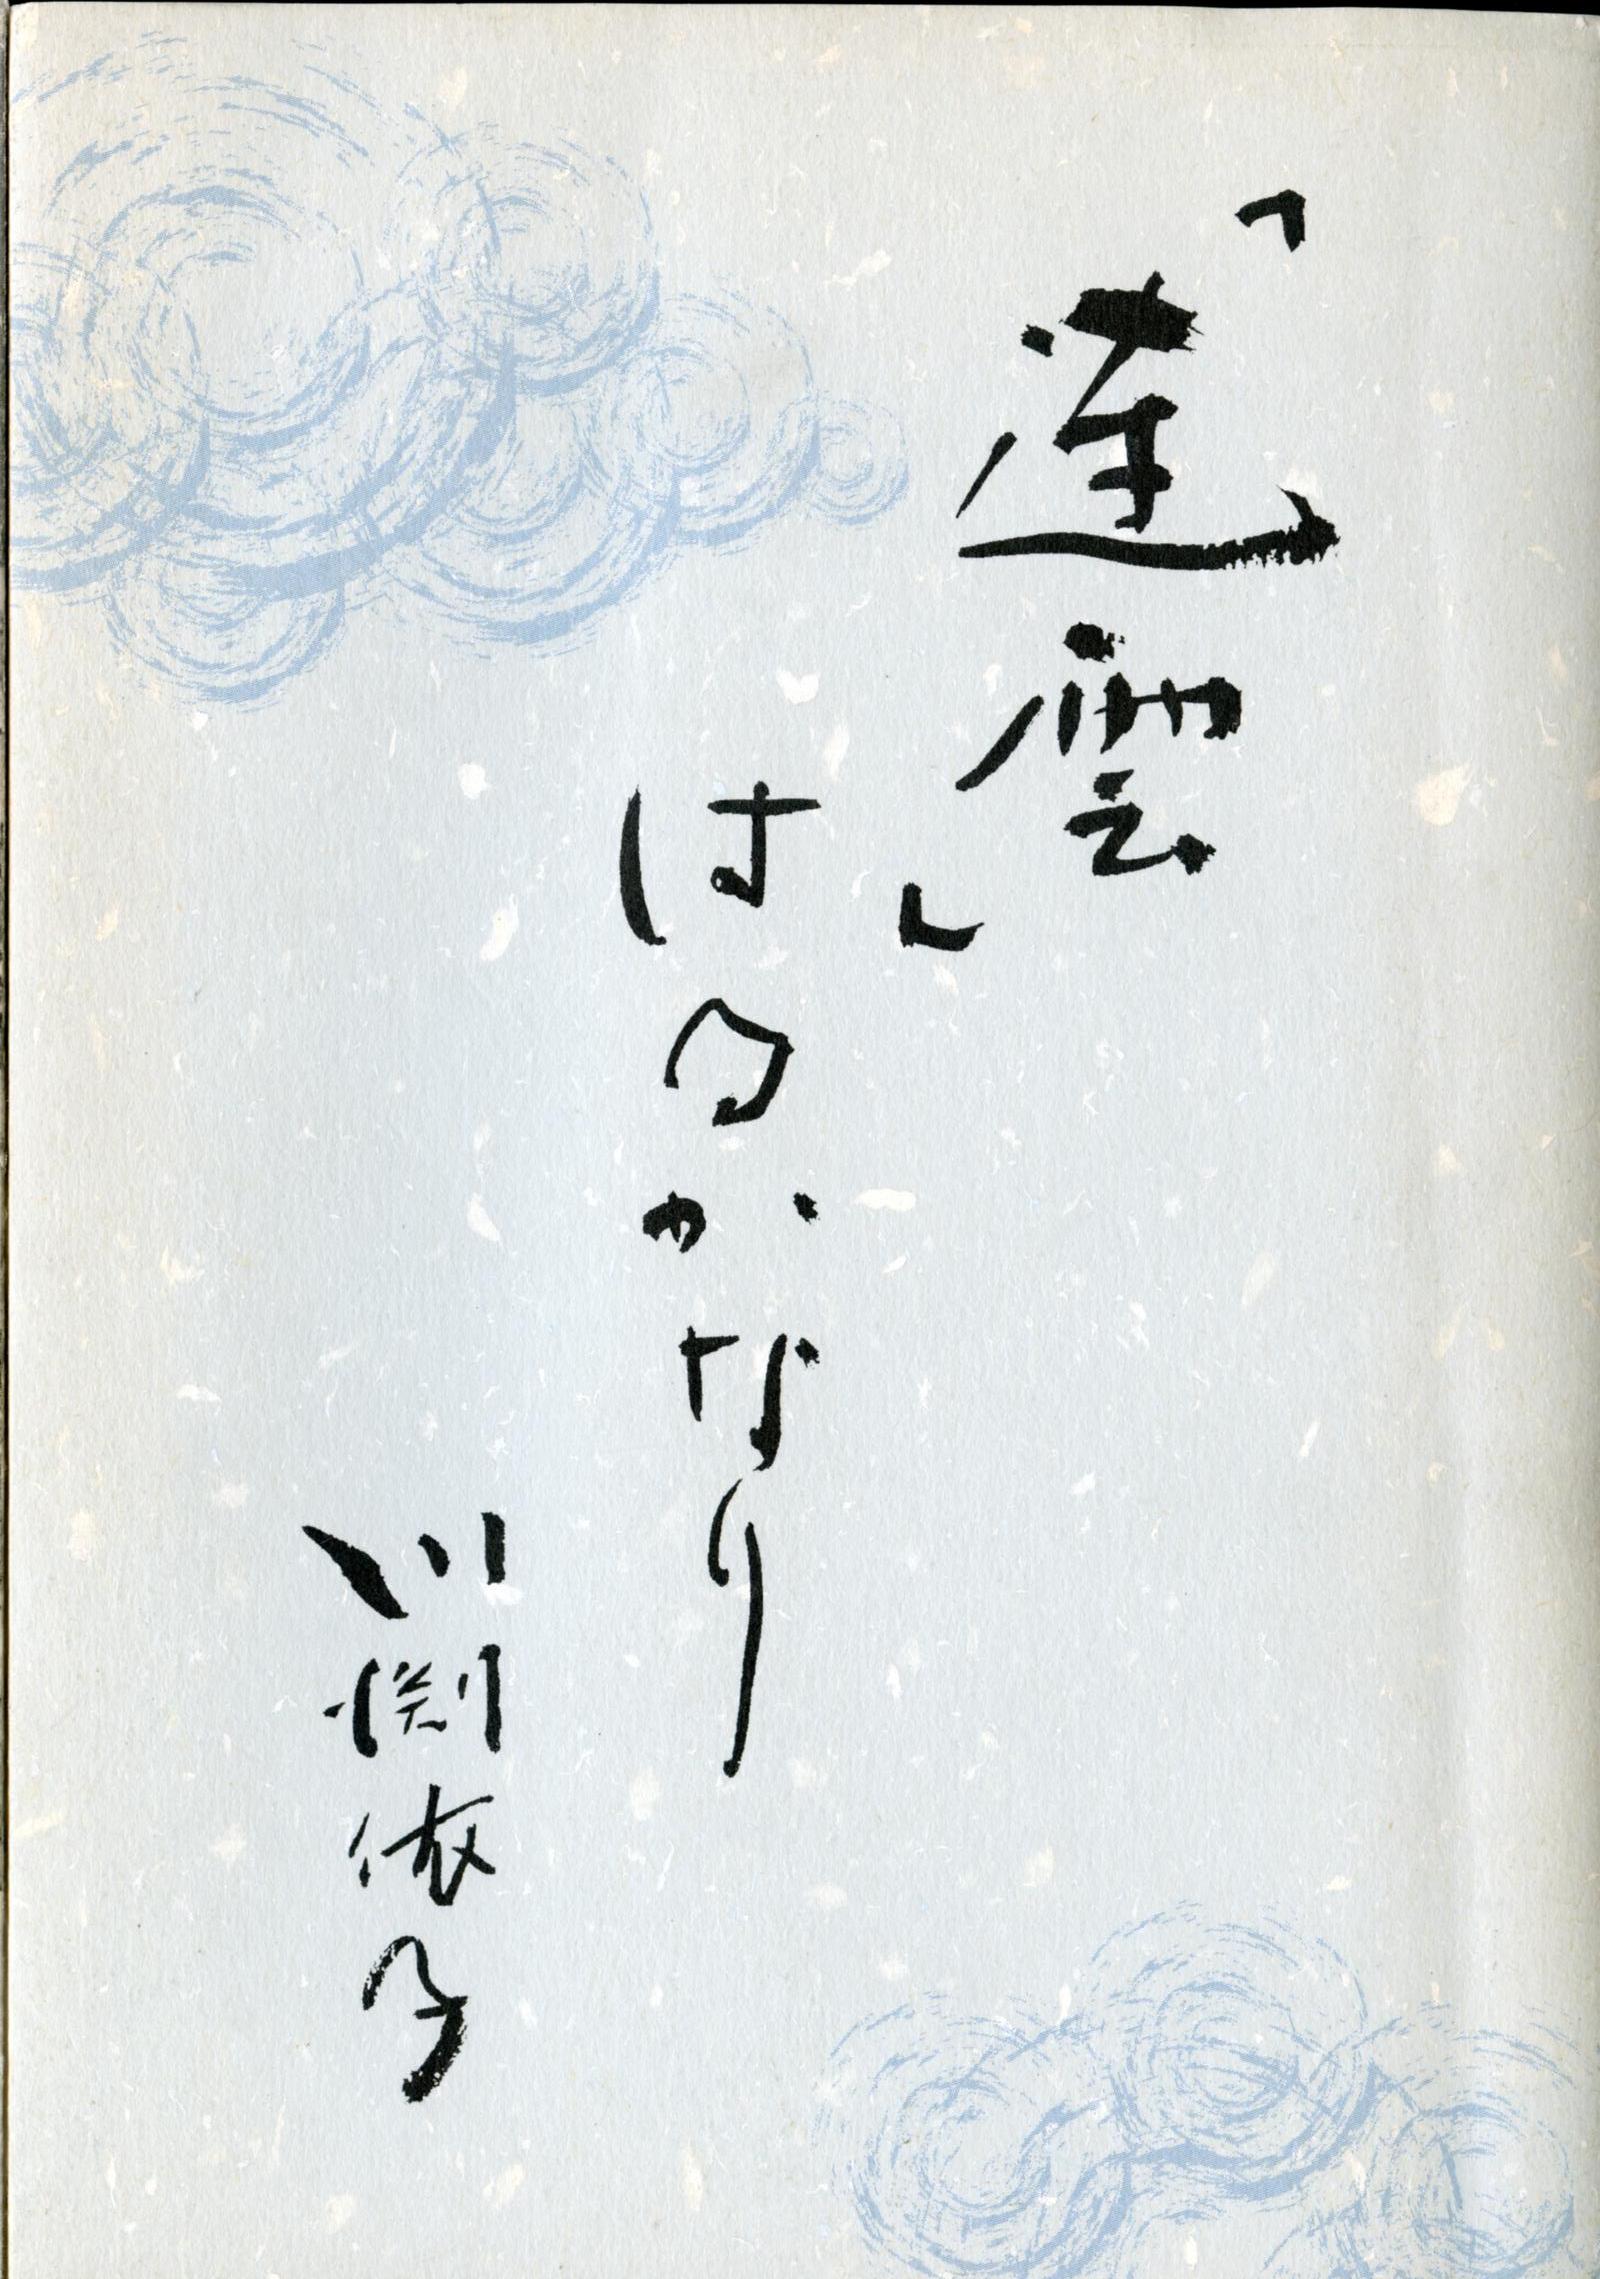 「連雲」
はるかなり
川渕依子